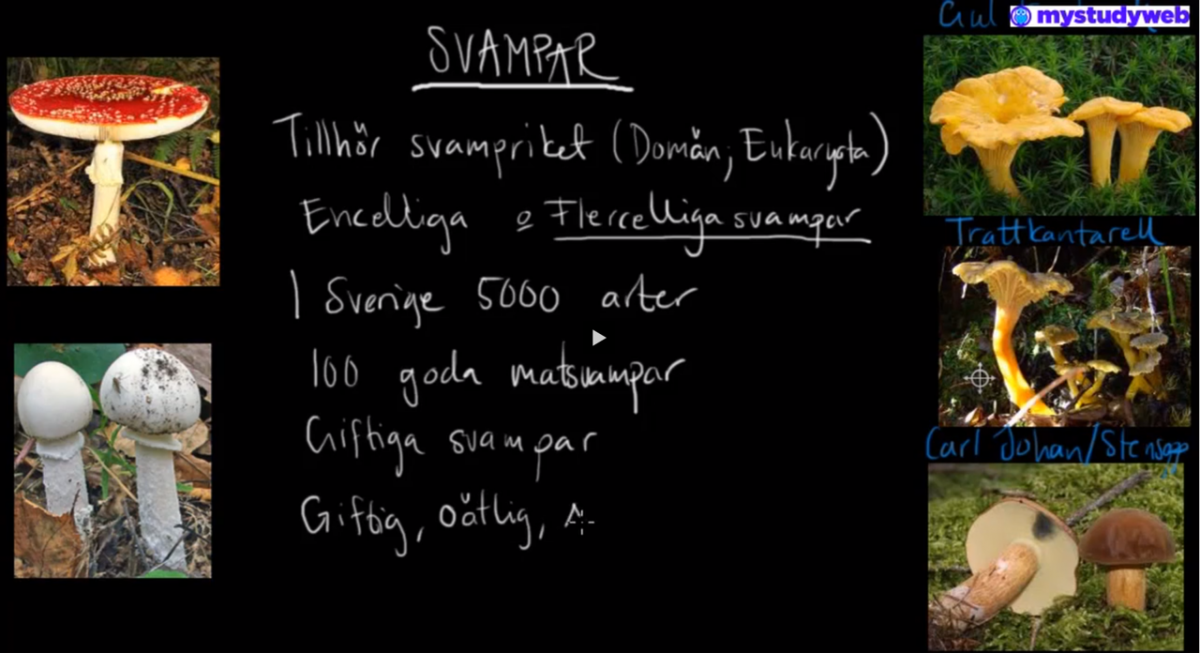 mystudyweb
SVAMPAR
Tillhör svampriket (Domän; Eukaryota)
Encelliga o Flercelliga svampar
I Sverige 5000 arter
100 goda matsvampar
Giftiga svampar
Giftig, oätlig,
Gul
Trattkantarell
Carl Johan/Stensopp